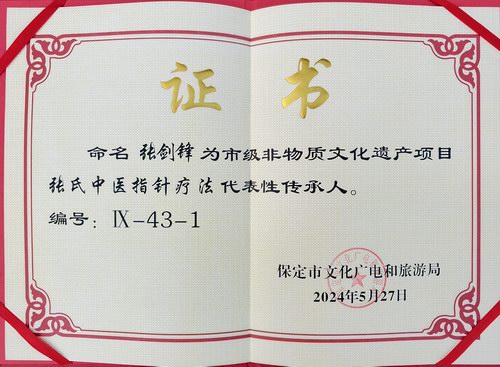 证书
命名 张剑锋 为市级非物质文化遗产项目
张氏中医指针疗法代表性传承人。
编号：Ⅸ-43-1
保定市文化广电和旅游局
2024年5月27日